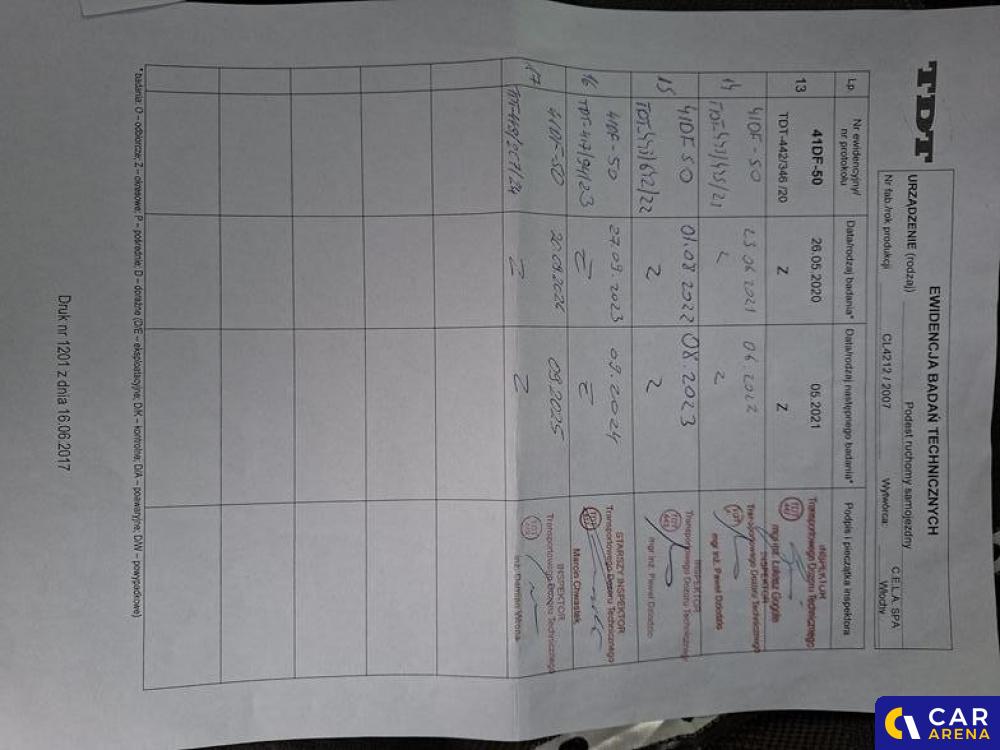 TDT
EWIDENCJA BADAŃ TECHNICZNYCH
URZĄDZENIE (rodzaj) Podest ruchomy samojezdny
Nr fab./rok produkcji CL4212 / 2007 Wytwórca: C.E.L.A. SPA Włochy
Lp. Nr ewidencyjny/ nr protokołu Data/rodzaj badania* Data/rodzaj następnego badania* Podpis i pieczątka inspektora
13 41DF-50 26.05.2020 05.2021 INSPEKTOR
TDT-442/346 /20 Z Z Transportowego Dozoru Technicznego
mgr inż. Łukasz
14 41DF-50 23 06 2021 06.2022 INSPEKTOR
TDT-443/425/21 Z Z Transportowego Dozoru Technicznego
mgr inż. Paweł Dziodzio
15 41DF50 01.08 2022 08.2023 INSPEKTOR
TDT-443/642/22 Z Z Transportowego Dozoru Technicznego
mgr inż. Paweł Dziodzio
16 41DF-50 27.09.2023 09.2024 STARSZY INSPEKTOR
TDT-417/94/23 Z Z Transportowego Dozoru Technicznego
Marcin Chwastek
17 41DF-50 20.09.2024 09.2025 INSPEKTOR
Z Z Transportowego Dozoru Technicznego
inż. Damian Wrona
*badania: O – odbiorcze; Z – okresowe; P – pośrednie; D – doraźne (D/E – eksploatacyjne; D/K – kontrolne; D/A – poawaryjne; D/W – powypadkowe)
Druk nr 1201 z dnia 16.06.2017
CAR
ARENA